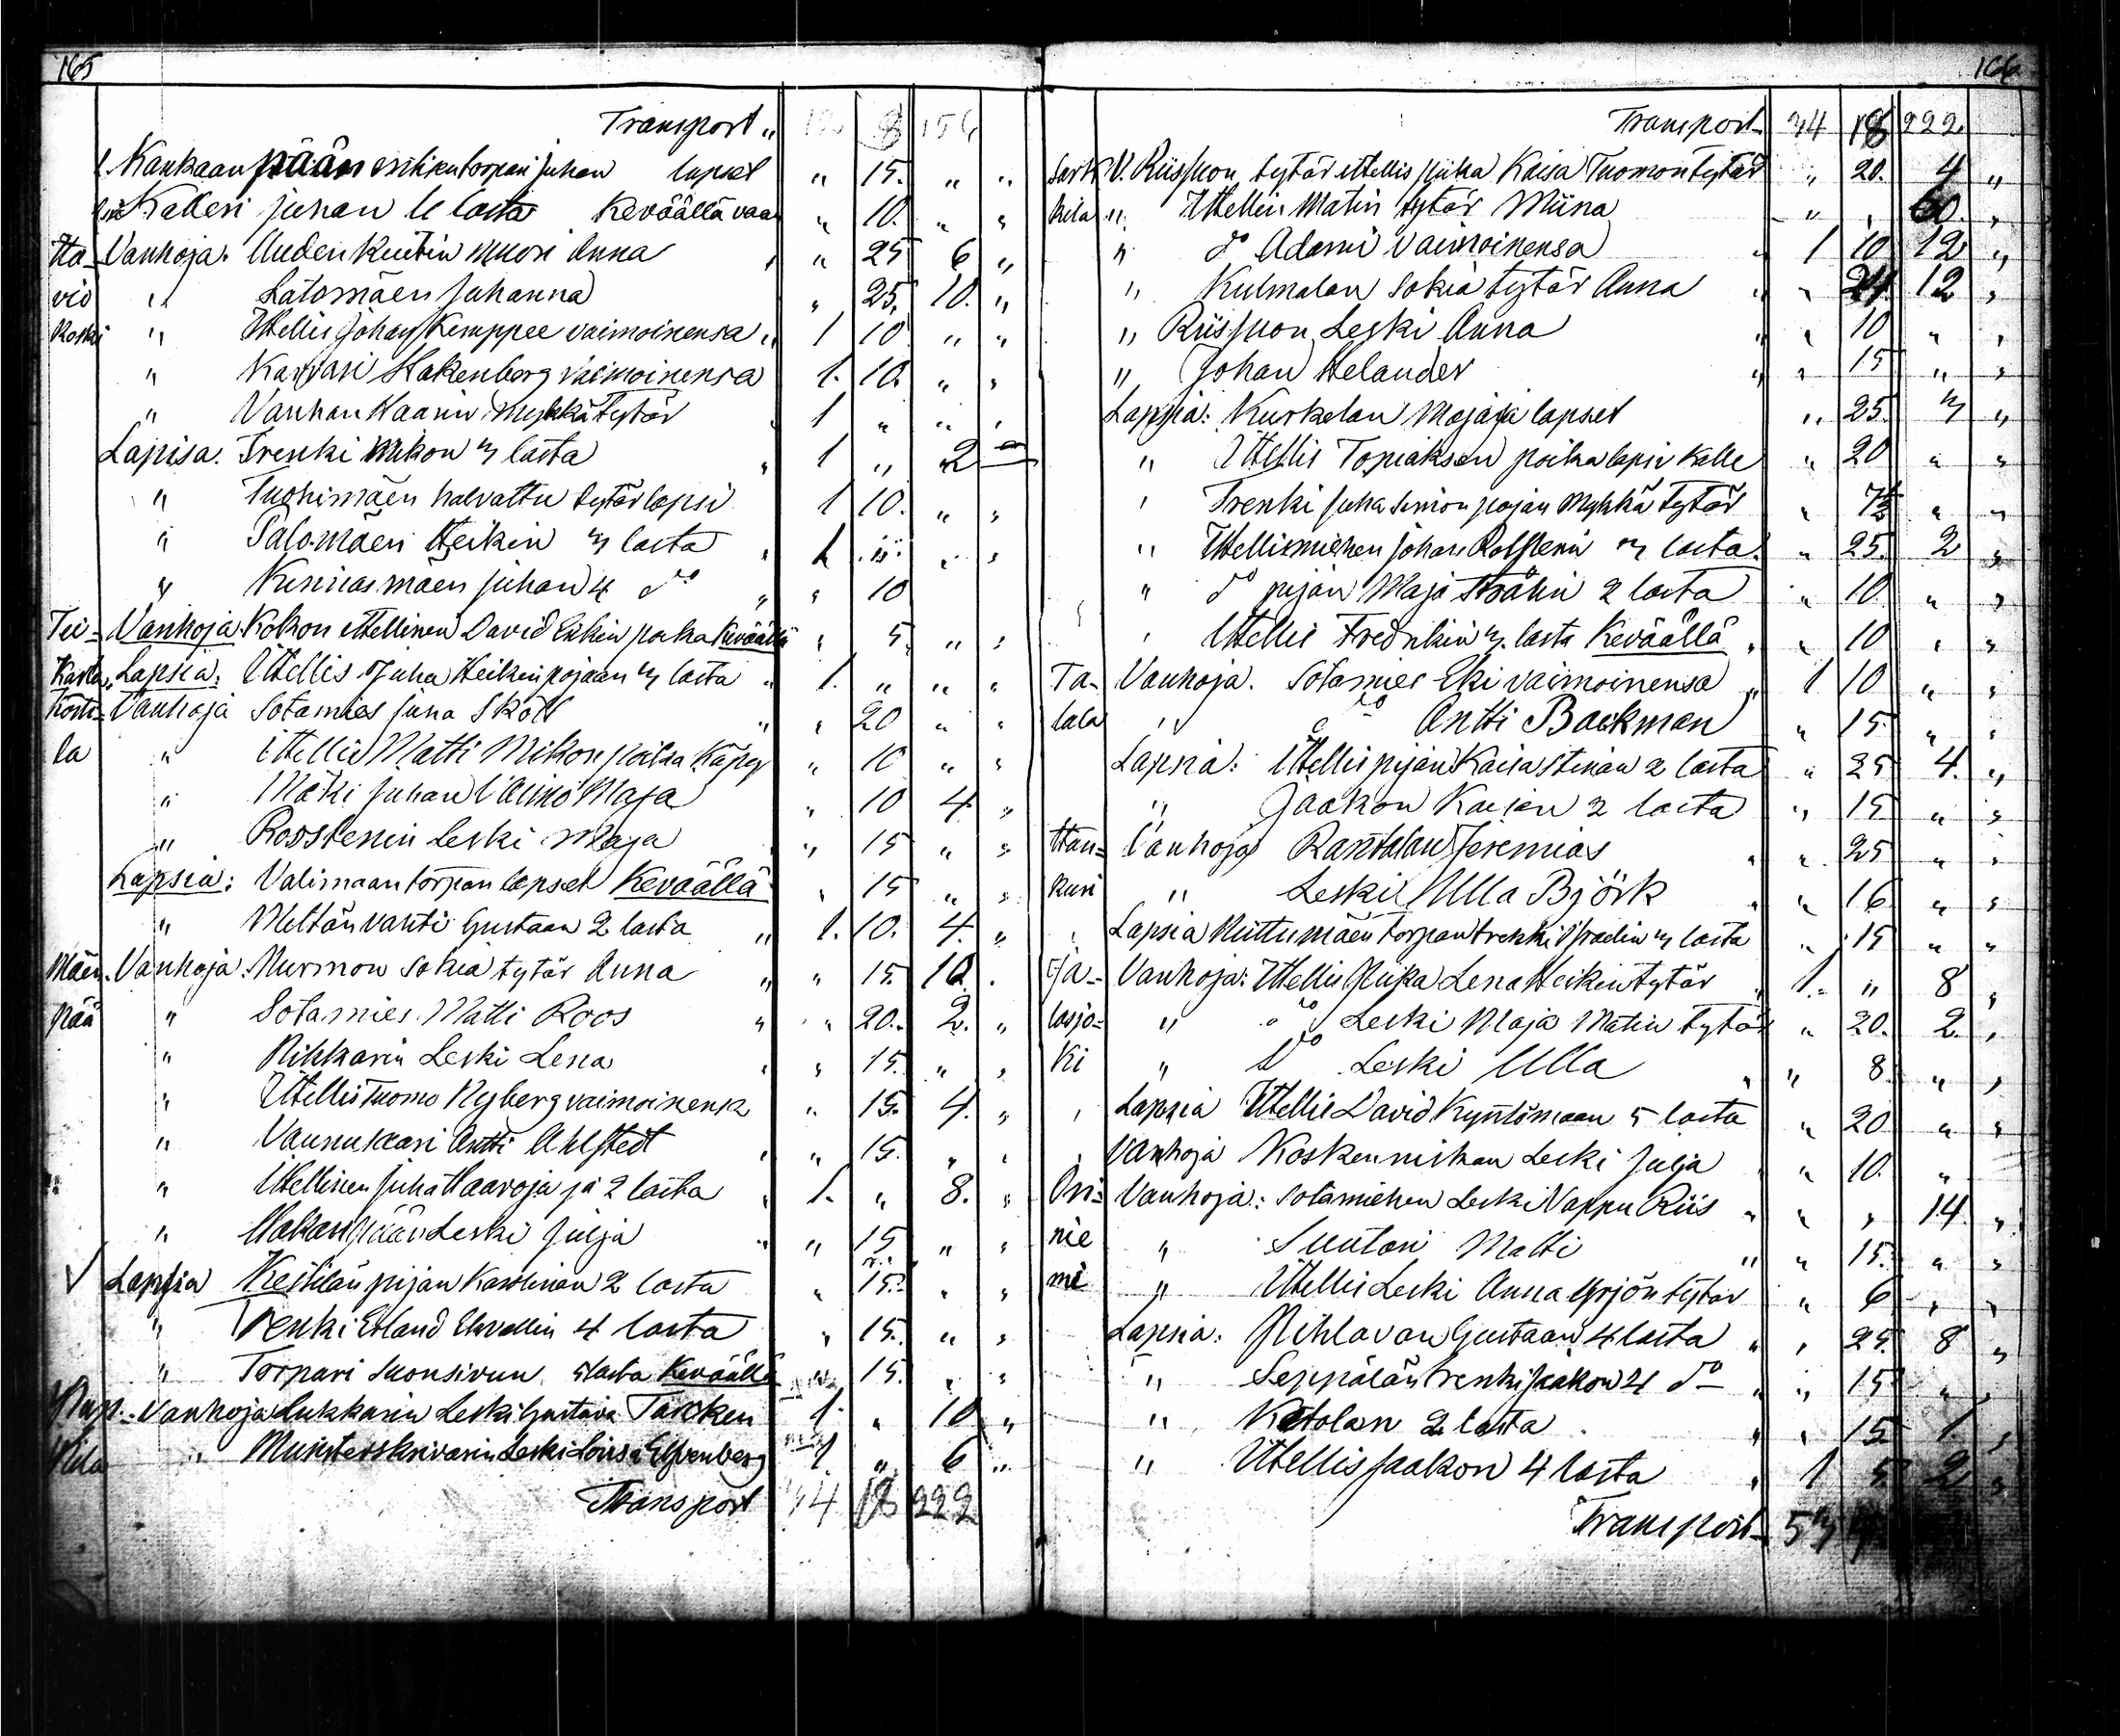 165
Transport „ 8 156
Kankaanpään torpan Juhan lapset „ 15. „ „
Kalleri Juhan lasta Keväällä vaan „ 10. „ „
Ha- Vanhoja. Uuden Kuitin muori Anna „ 25 6 „
vio „ Latomäen Juhanna „ 25. 10. „
Koski „ Ittellis Johan Kemppee vaimoinensa „ 1 10 „ „
„ Karvari Hakenberg vaimoinensa 1. 10. „ „
„ Vanhan Kaarin Mykkä Tytär 1 „ „ „
Lapisa. Trenki Mikon 3 lasta „ 1 „ 2
„ Tuohimäen halvattu tytär lapsi 1 10. „ „
„ Palomäen Heikin 3 lasta „ 1 „ „ „
„ Juhan 4 do „ „ 10
Tii- Vanhoja Kokon Ittellinen David Erkin poika Keväällä „ 5. „ „
Lapsia: Ittellis Juha Heikinpojaan 3 lasta „ 1. „ „ „
Vanhoja Sotamies Juha Sköll „ „ 20 „ „
la „ Ittellis Matti Mikon poika Käpy „ 10 „ „
„ Mäki Juhan Vaimo Maja „ 10 4. „
„ Roostenin Leski Maja „ 15 „ „
Lapsia: Valimaan torpan lapset Keväällä „ 15 „ „
„ Mettän vahti Gustaan 2 lasta „ 1. 10. 4. „
Mäen- Vanhoja: Nurmon sokia tytär Anna „ „ 15. 10. „
pää „ Sotamies Matti Roos „ „ 20. 2. „
„ Nikkarin Leski Lena „ „ 15. „ „
„ Ittellis Tuomo Nyberg vaimoinenk „ 15. 4. „
„ Antti Ahlstedt „ „ 15. „ „
„ Ittellinen Juha Haavoja ja 2 lasta „ 1. „ 8. „
„ Leski Julja „ „ 15 „ „
Lapsia Keihilän pijan Karolinan 2 lasta „ 15. „ „
„ Renki Erland 4 lasta „ 15. „ „
„ Torpari Suonsivun lasta Keväällä „ 15. „ „
Vanhoja Lukkarin Leski Gustava 1. „ 10 „
„ Leski Lovisa Elfvenberg 1. „ 6 „
Transport 34 18 222
166
Transport 34 18 222
Sark V. Riispuon tytär ittellis piika Kaisa Tuomontytär „ 20. 4 „
kila „ Ittellis Matin tytär Miina „ „ 60. „
„ do Adami Vaimoinensa „ 1 10 12 „
„ Kulmalan sokia tytär Anna „ „ 24 12 „
„ Riispuon Leski Anna „ „ 10 „ „
„ Johan Helander „ „ 15 „ „
Lapsia: Kurkelan Majaja lapset „ 25. 3 „
„ Ittellis Topiaksen poika lapsi Kalle „ 20 „ „
„ Trenki Juha Simon pojan Mykkä Tytär „ 7½ „ „
„ Ittellismiehen Johan Rolstenin 3 lasta „ 25. 2 „
„ do pijan Maja Strålin 2 lasta „ 10. „ „
„ Ittellis Fredrikin 3 lasta Keväällä „ „ 10 „ „
Ta- Vanhoja. Sotamies Eki vaimoinensa „ 1 10 „ „
lala „ do Antti Backman „ 15. „ „
Lapsia: Ittellis pijan Kaisastinan 2 lasta „ 25 4. „
„ Jaakon Kaisan 2 lasta „ 15 „ „
Han- Vanhoja Rantalan Jeremias „ „ 25 „ „
kuri „ Leski Ulla Björk „ „ 16 „ „
Lapsia torpan trenki 3 lasta „ 15 „ „
Oja- Vanhoja: Ittellis Piika Lena Heikintytär „ 1. „ 8 „
lasjo- „ do Leski Maja Matin tytär „ 20. 2. „
ki „ do Leski Ulla „ „ 8 „ „
Lapsia Ittellis David Kyntömaan 5 lasta „ 20 „ „
Vanhoja Koskenniskan Leski Julja „ „ 10. „
Oni- Vanhoja: Sotamiehen Leski Vappu Riis „ „ „ 14. „
nie „ Suutari Matti „ „ 15. „ „
mi „ Ittellis Leski Anna Yrjön tytär „ 6 „ „
Lapsia: Pihlavan Gustaan 4 lasta „ „ 25. 8 „
„ Seppälän trenki Jaakon 4 do „ „ 15 „ „
„ Katolan 2 lasta „ „ 15. 1. „
„ Ittellis Jaakon 4 lasta „ 1 5. 2 „
Transport 53